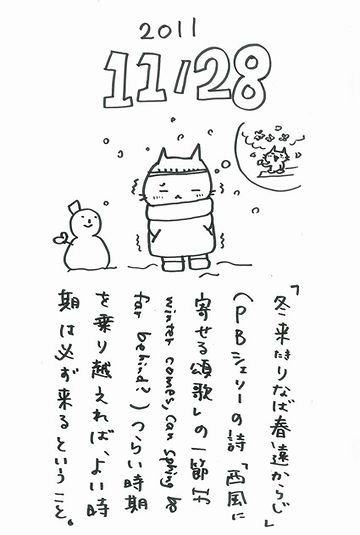 2011
11/28
「冬来たりなば春遠からじ」
(PBシェリーの詩「西風に
寄せる頌歌」の一節If
winter comes, can spring be
far behind?)つらい時期
を乗り越えれば、よい時
期は必ず来るということ。